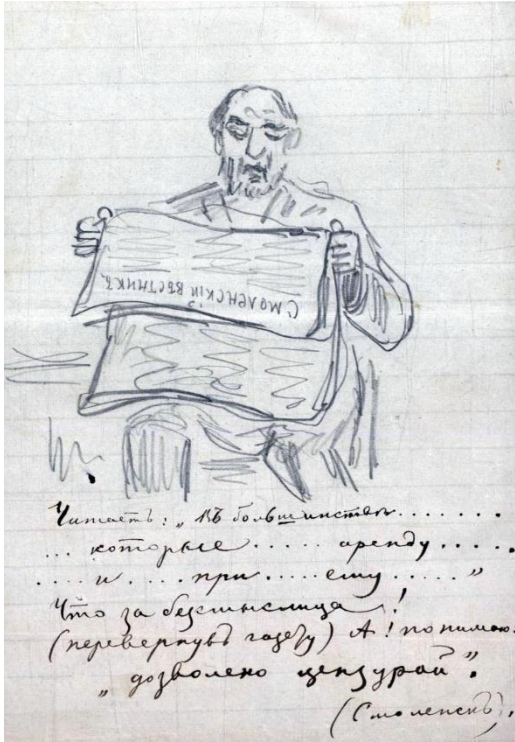 СМОЛЕНСКІЙ ВѢСТНИКЪ
Читаетъ: „Въ большинствѣ.......
... которые..... аренду.....
..... и.... при..... ему.....”
Что за безсмыслица!
(перевернувъ газету) А! понимаю.
„дозволено цензурой”.
(Смоленскъ).